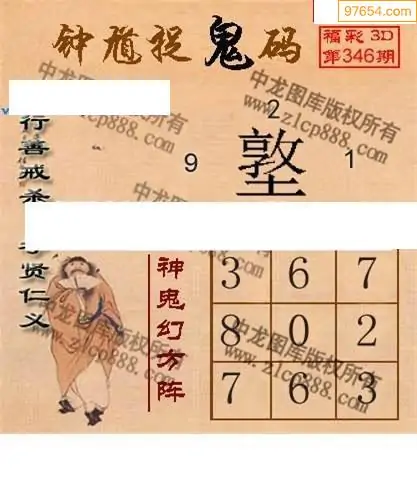 97654.com
钟馗捉鬼码
福彩 3D
第346期
中龙图库版权所有
www.zlcp888.com
行善戒杀
贤仁义
2
9
墪
1
中龙图库版权所有
www.zlcp888.com
神鬼幻方阵
3 6 7
8 0 2
7 6 3
中龙图库版权所有
www.zlcp888.com